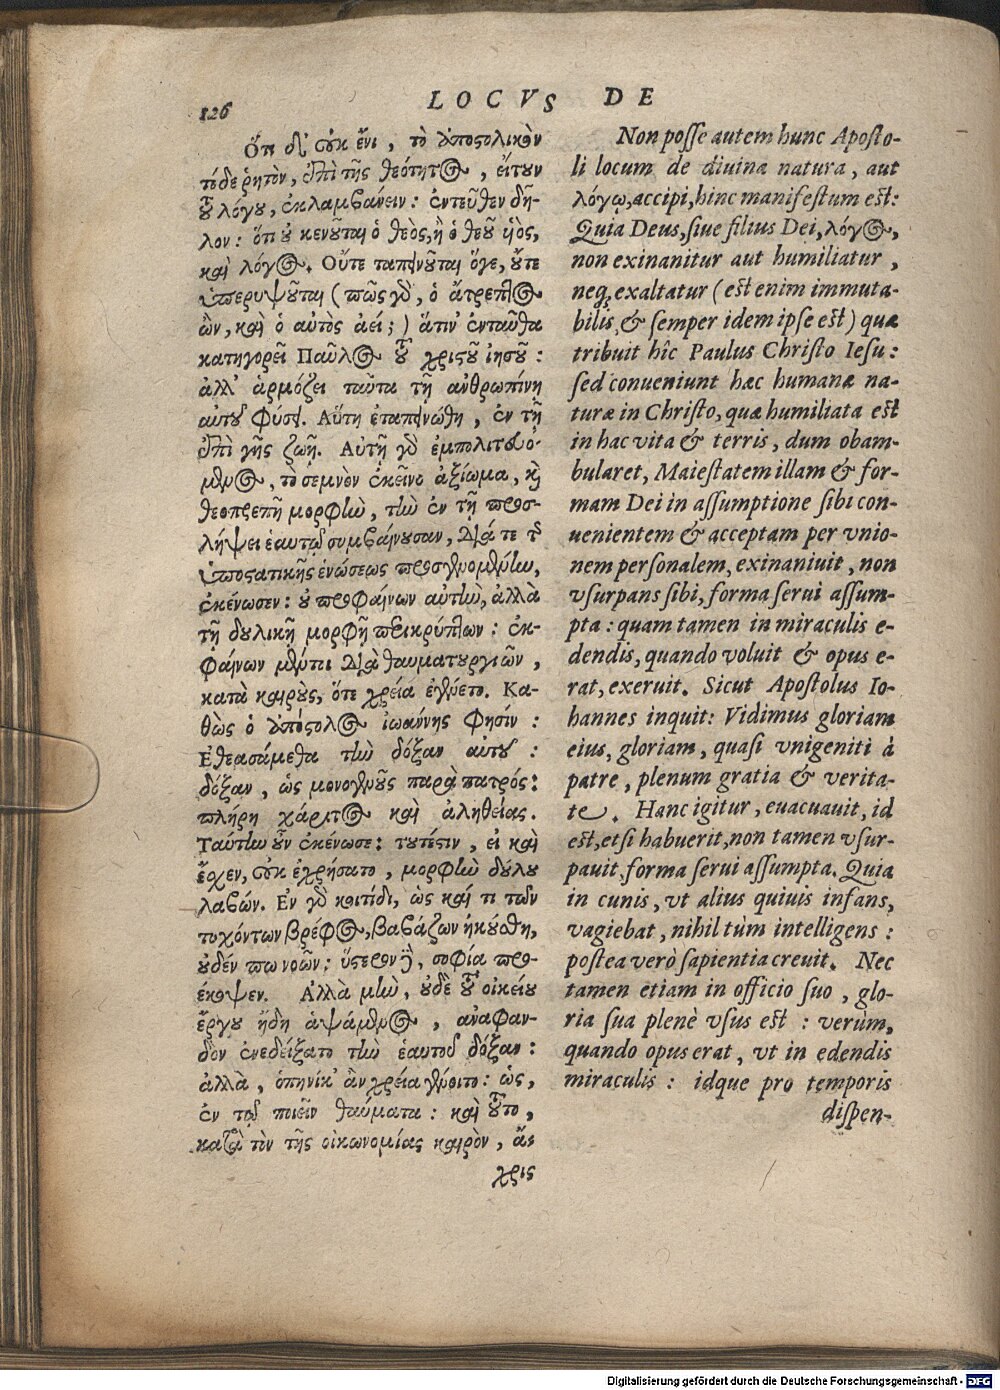 126
LOCVS DE
Ὅτι δὲ οὐκ ἔνι, τὸ ἀποστολικὸν
τόδε ῥητὸν, ἐπὶ τῆς θεότητος, εἴτουν
τοῦ λόγου, ἐκλαμβάνειν: ἐντεῦθεν δῆ-
λον: ὅτι οὐ κενοῦται ὁ θεὸς, ἢ ὁ θεοῦ υἱὸς,
καὶ λόγος. Οὔτε ταπεινοῦται ὅγε, οὔτε
ὑπερυψοῦται (πῶς γὰρ, ὁ ἄτρεπτος
ὢν, καὶ ὁ αὐτὸς ἀεί;) ἅτιν' ἐνταῦθα
κατηγορεῖ Παῦλος τοῦ χριστοῦ ἰησοῦ:
ἀλλ' ἁρμόζει ταῦτα τῇ ἀνθρωπίνῃ
αὐτοῦ φύσει. Αὕτη ἐταπεινώθη, ἐν τῇ
ἐπὶ γῆς ζωῇ. Αὐτῇ γὰρ ἐμπολιτευό-
μενος, τὸ σεμνὸν ἐκεῖνο ἀξίωμα, καὶ
θεοπρεπῆ μορφὴν, τὴν ἐν τῇ προσ-
λήψει ἑαυτῷ συμβαίνουσαν, διά τε τῆς
ὑποστατικῆς ἑνώσεως προσγενομένην,
ἐκένωσεν: οὐ προφαίνων αὐτὴν, ἀλλὰ
τῇ δουλικῇ μορφῇ περικρύπτων: ἐκ-
φαίνων μέντοι διὰ θαυματουργιῶν,
κατὰ καιροὺς, ὅτε χρεία ἐγένετο. Κα-
θὼς ὁ ἀπόστολος ἰωάννης φησίν:
Ἐθεασάμεθα τὴν δόξαν αὐτοῦ:
δόξαν, ὡς μονογενοῦς παρὰ πατρός:
πλήρη χάριτος καὶ ἀληθείας.
Ταύτην οὖν ἐκένωσε: τουτέστιν, εἰ καὶ
ἔσχεν, οὐκ ἐχρήσατο, μορφὴν δούλου
λαβών. Ἐν γὰρ κοιτίδι, ὡς καί τι τῶν
τυχόντων βρέφος, βαβάζων ἠκούσθη,
οὐδέν πω νοῶν: ὕστερον δὲ, σοφία προ-
έκοψεν. Ἀλλὰ μὴν, οὐδὲ τοῦ οἰκείου
ἔργου ἤδη ἁψάμενος, ἀναφαν-
δὸν ἐνεδείξατο τὴν ἑαυτοῦ δόξαν:
ἀλλὰ, ὁπηνίκ' ἂν χρεία γένοιτο: ὡς,
ἐν τῷ ποιεῖν θαύματα: καὶ τοῦτο,
κατὰ τὸν τῆς οἰκονομίας καιρὸν, ἄ-
χρις
Non posse autem hunc Aposto-
li locum de diuina natura, aut
λόγῳ, accipi, hinc manifestum est:
Quia Deus, siue filius Dei, λόγος,
non exinanitur aut humiliatur,
neq; exaltatur (est enim immuta-
bilis, & semper idem ipse est) quæ
tribuit hîc Paulus Christo Iesu:
sed conueniunt hæc humanæ na-
turæ in Christo, quæ humiliata est
in hac vita & terris, dum obam-
bularet, Maiestatem illam & for-
mam Dei in assumptione sibi con-
uenientem & acceptam per vnio-
nem personalem, exinaniuit, non
vsurpans sibi, forma serui assum-
pta: quam tamen in miraculis e-
dendis, quando voluit & opus e-
rat, exeruit. Sicut Apostolus Io-
hannes inquit: Vidimus gloriam
eius, gloriam, quasi vnigeniti à
patre, plenum gratia & verita-
te. Hanc igitur, euacuauit, id
est, etsi habuerit, non tamen vsur-
pauit, forma serui assumpta. Quia
in cunis, vt alius quiuis infans,
vagiebat, nihil tùm intelligens:
postea verò sapientia creuit. Nec
tamen etiam in officio suo, glo-
ria sua plenè vsus est: verùm,
quando opus erat, vt in edendis
miraculis: idque pro temporis
dispen-
Digitalisierung gefördert durch die Deutsche Forschungsgemeinschaft - DFG